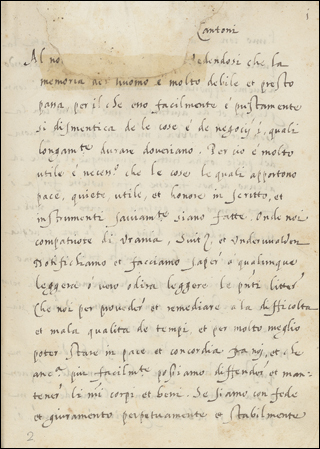 1
Cantoni
Al no vedendosi che la
memoria del huomo è molto debile et presto
passa, per il che esso facilmente è justamente
si dismentica de le cose è de negocij i, quali
longamte durare doveriano. Per cio è molto
utile è necessº che le cose le quali apportono
pace, quiete, utile, et honore in scritto, et
instrumenti saviamte siano fatte. Onde noi
compatuore di Urania, Suit, et Undervualden
Notifichiamo et facciamo saper a qualunque
leggera o vero odira leggere le pnti litter
Che noi per proveder et remediare a la difficolta
et mala qualita de tempi et per molto meglio
poter stare in pace et concordia fra noi, et che
anca piu facilmte possiamo diffender, et man-
tener li nri corpi et beni. Se siamo, con fede
et giuramento perpetuamente et stabilmente
2